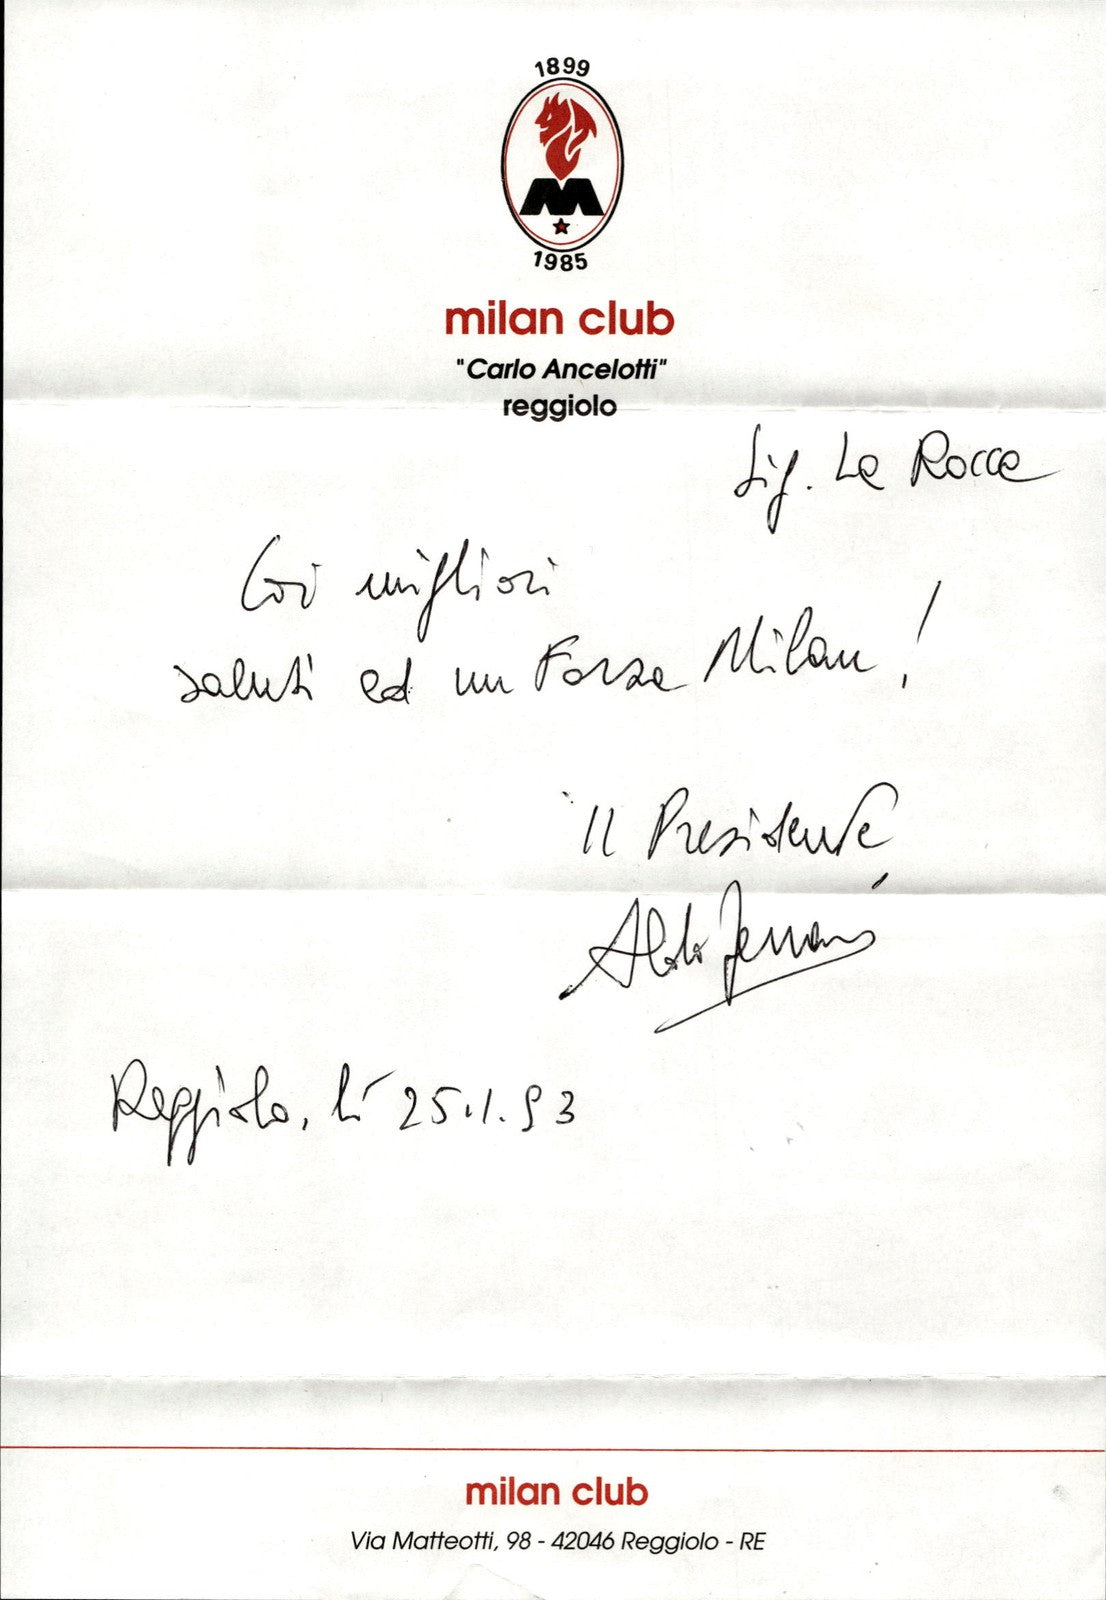 1899
M
1985
milan club
"Carlo Ancelotti"
reggiolo
Sig. La Rocca
Coi migliori
saluti ed un Forza Milan!
Il Presidente
Aldo
Reggiolo, lì 25.1.93
milan club
Via Matteotti, 98 - 42046 Reggiolo - RE